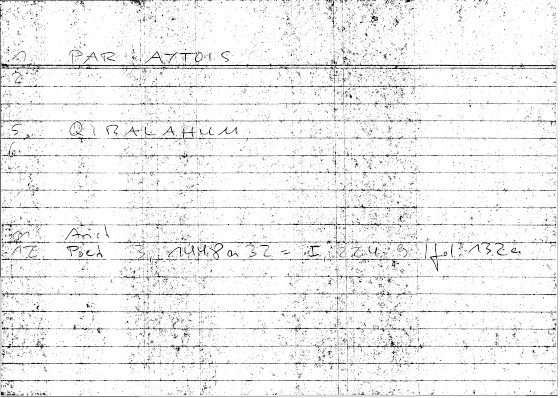 1 PAR' AYTOIS
2
5 QIBALAHUM
6
11 Arid
12 Poet 3, 1448a 32 = I, 224, 9 | fol. 132a